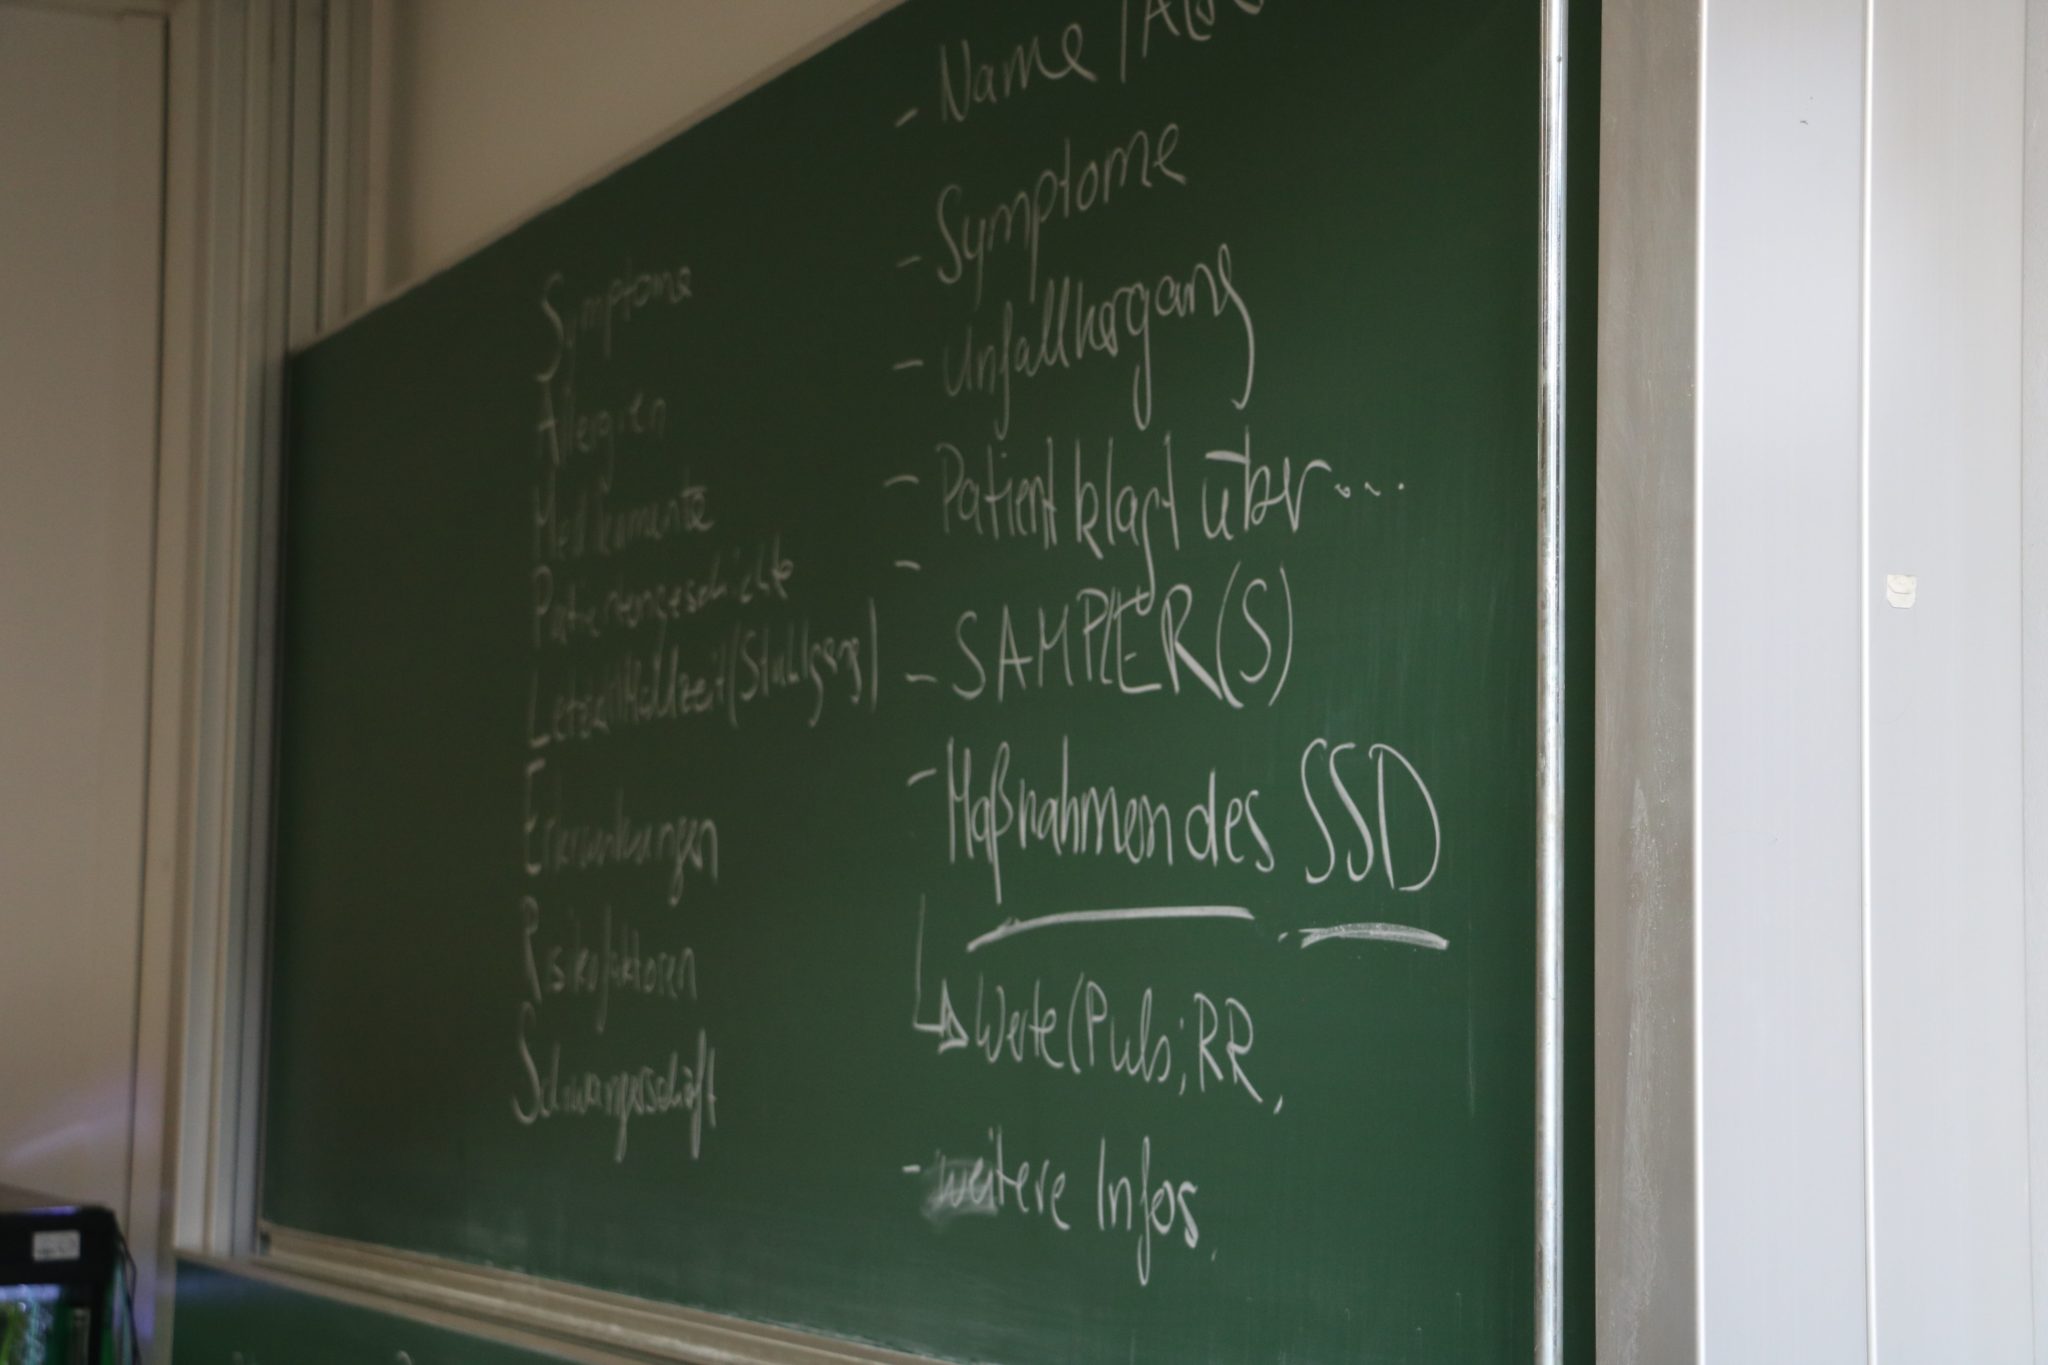 Symptome
Allergien
Medikamente
Patientengeschichte
Letzte Mahlzeit (Stuhlgang)
Erkrankungen
Risikofaktoren
Schwangerschaft
- Name /
- Symptome
- Unfallhergang
- Patient klagt über...
-
- SAMPLER(S)
- Maßnahmen des SSD
Werte (Puls; RR,
- weitere Infos.